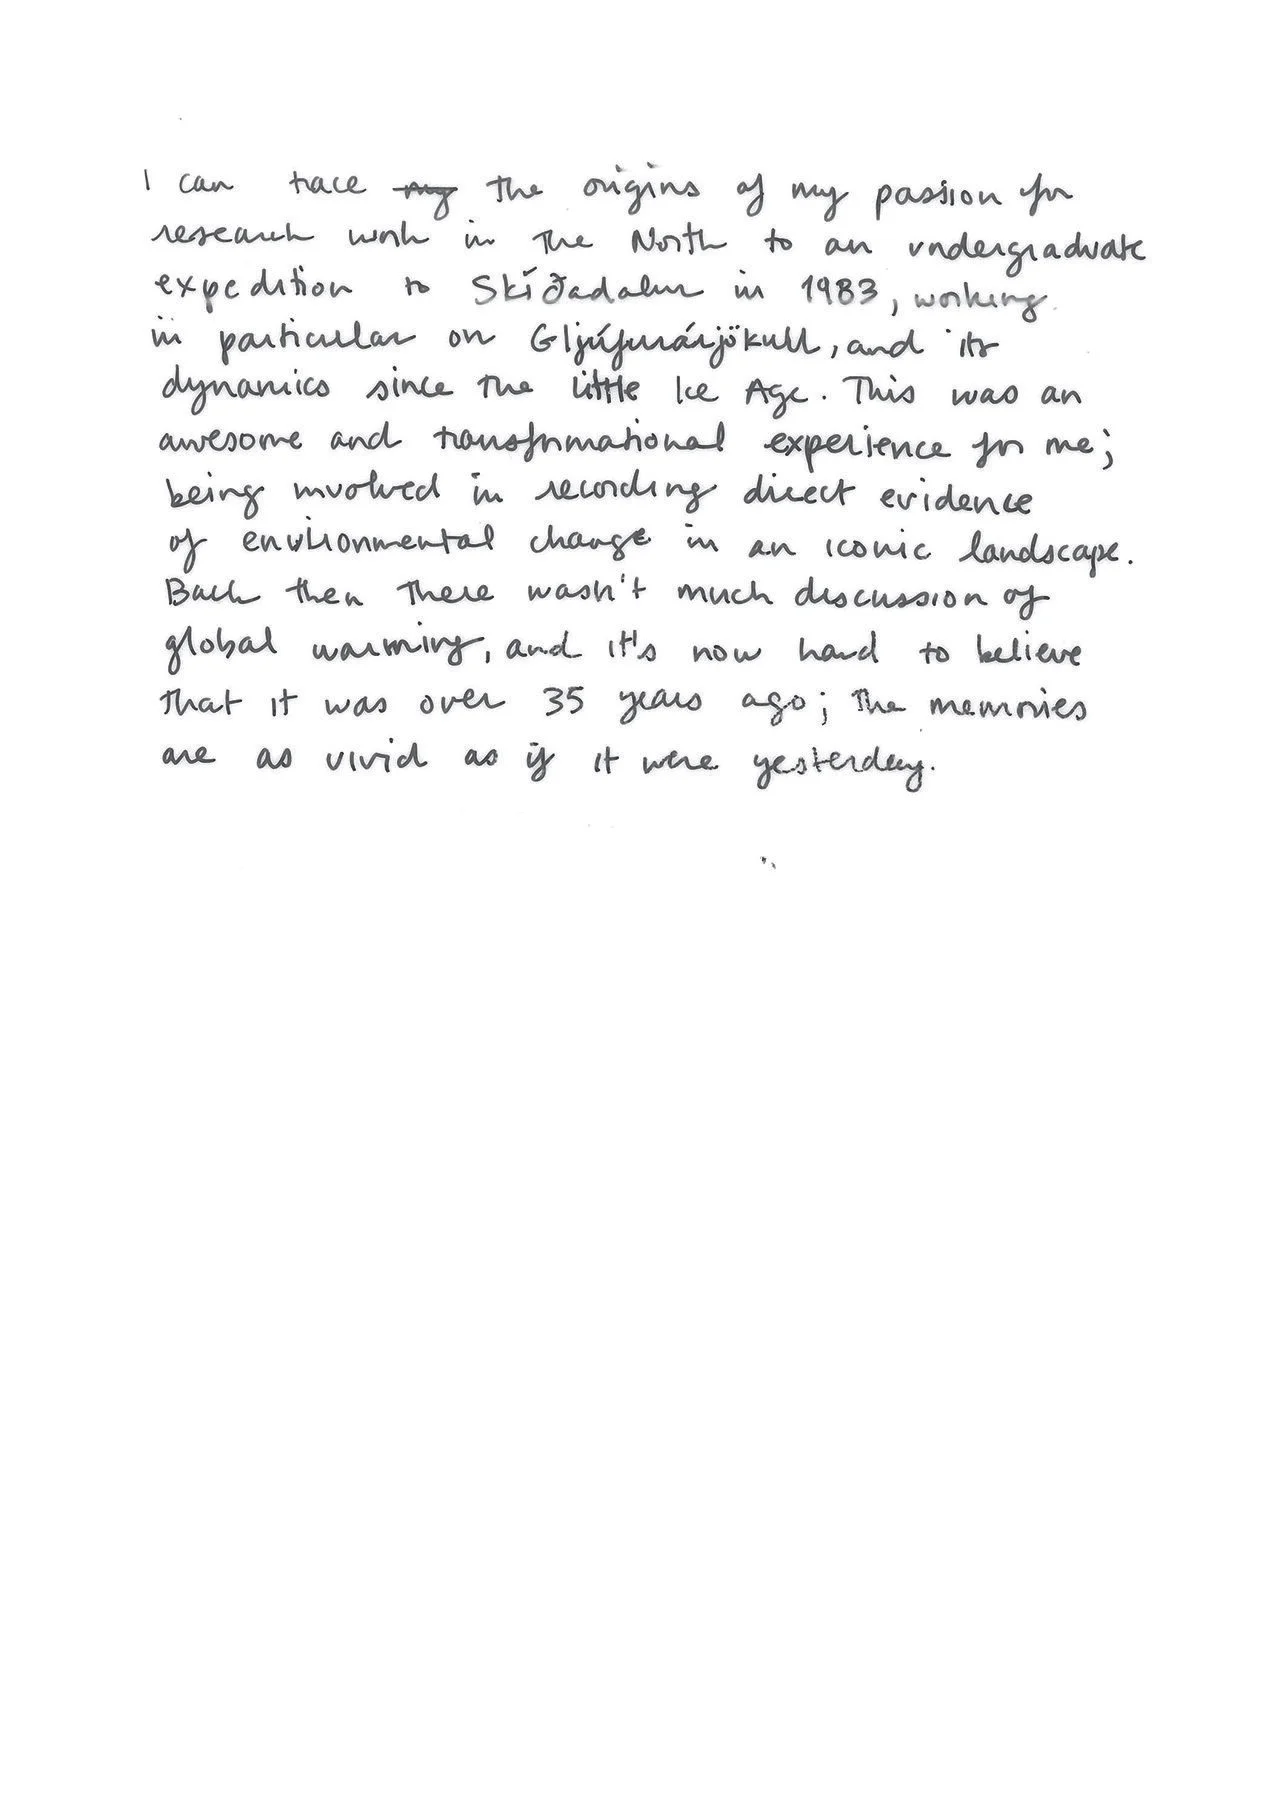 I can trace my the origins of my passion for
research work in the North to an undergraduate
expedition to Skíðadalur in 1983, working
in particular on Gljúfurárjökull, and its
dynamics since the little Ice Age. This was an
awesome and transformational experience for me;
being involved in recording direct evidence
of environmental change in an iconic landscape.
Back then there wasn't much discussion of
global warming, and it's now hard to believe
that it was over 35 years ago; the memories
are as vivid as if it were yesterday.